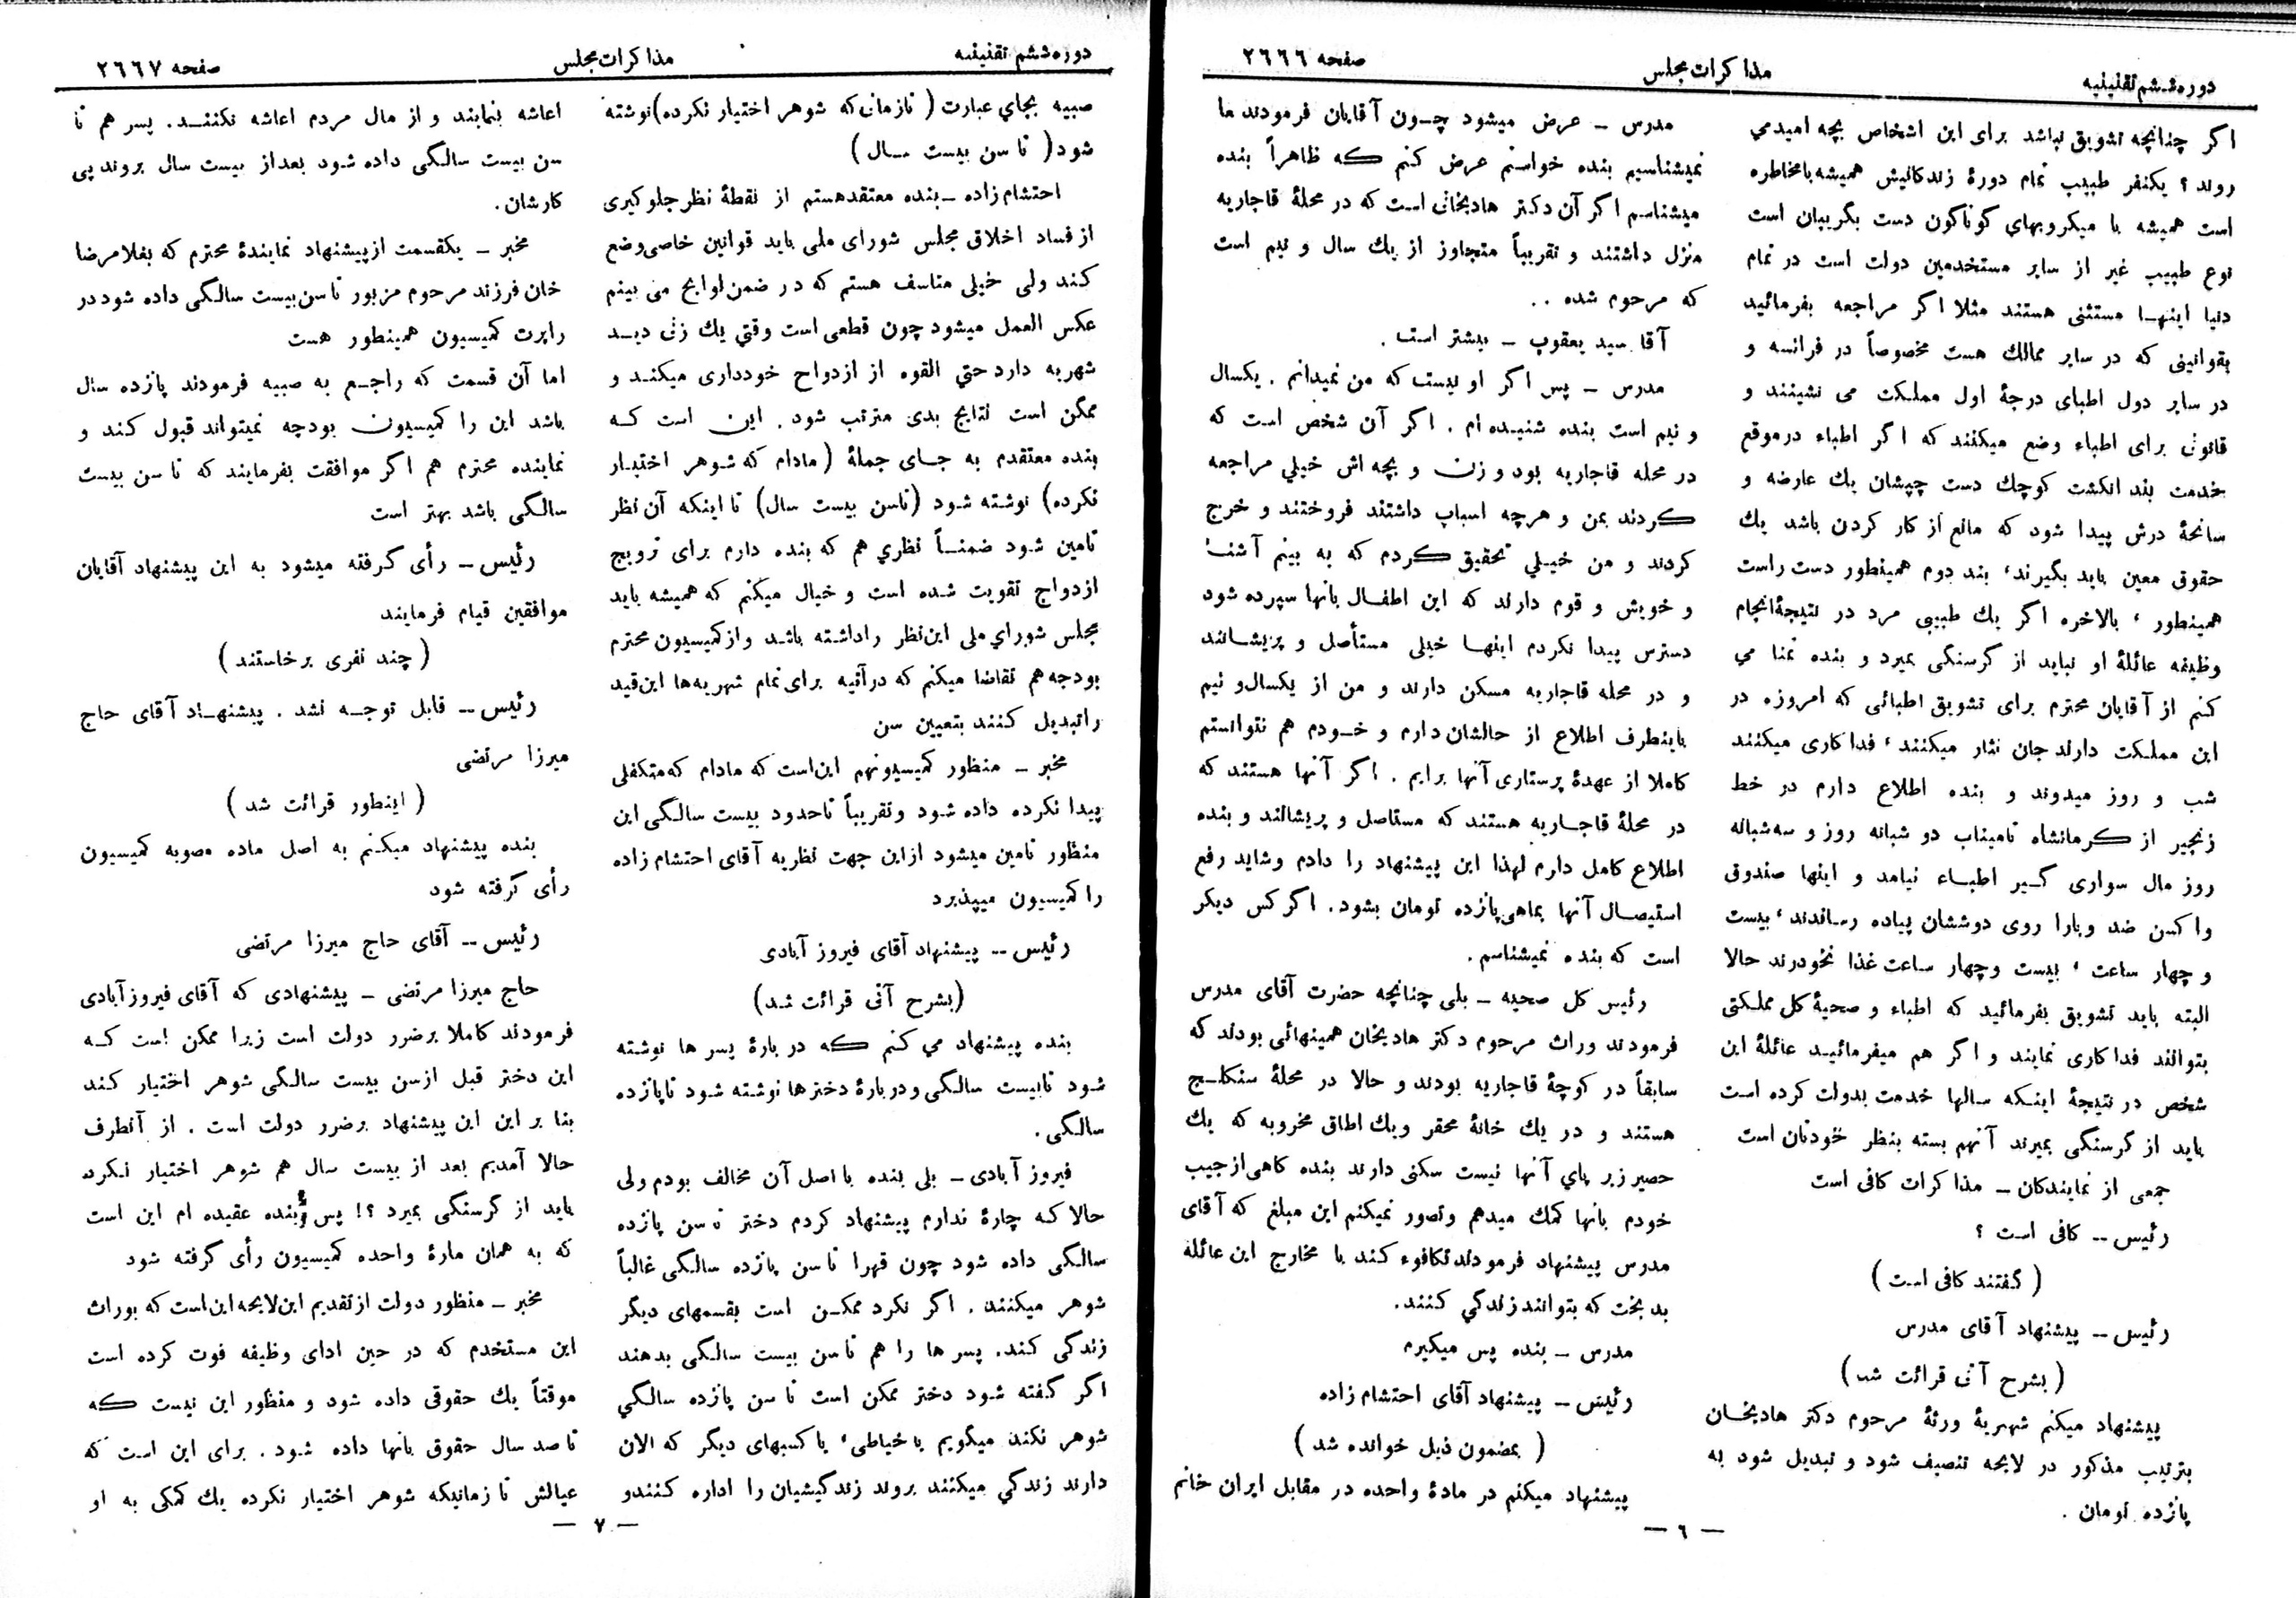 دوره‌ششم تقنینیه
مذاکرات مجلس
صفحه ۲۶۶۶
اگر چنانچه تشویق نباشد برای این اشخاص بچه امیدمی
روند ؟ یکنفر طبیب تمام دورهٔ زندگانیش همیشه بامخاطره
است همیشه با میکروبهای گوناگون دست بگریبان است
نوع طبیب غیر از سایر مستخدمین دولت است در تمام
دنیا اینهـا مستثنی هستند مثلا اگر مراجعه بفرمائید
بقوانینی که در سایر ممالك هست مخصوصاً در فرانسه و
در سایر دول اطبای درجهٔ اول مملکت می نشینند و
قانونی برای اطباء وضع میکنند که اگر اطباء درموقع
خدمت بند انگشت کوچك دست چپشان یك عارضه و
سانحهٔ درش پیدا شود که مانع از کار کردن باشد یك
حقوق معین باید بگیرند، بند دوم همینطور دست راست
همینطور ، بالاخره اگر یك طبیبی مرد در نتیجهٔ‌انجام
وظیفه عائلهٔ او نباید از گرسنگی بمیرد و بنده تمنا می
کنم از آقایان محترم برای تشویق اطبائی که امروزه در
این مملکت دارند جان نثار میکنند ، فداکاری میکنند
شب و روز میدوند و بنده اطلاع دارم در خط
زنجیر از کرمانشاه تامیناب دو شبانه روز و سه‌شبانه
روز مال سواری گـیر اطبـاء نیامد و اینها صندوق
واکسن ضد وبارا روی دوششان پیاده رسـاندند ، بیست
و چهار ساعت ، بیست وچهار ساعت غذا نخوردند حالا
البته باید تشویق بفرمائید که اطباء و صحیهٔ کل مملکتی
بتوانند فداکاری نمایند و اگر هم میفرمائیـد عائلهٔ این
شخص در نتیجهٔ اینکه سالها خدمت بدولت کرده است
باید از گرسنگی بمیرند آنهم بسته بنظر خودتان است
جمعی از نمایندگان ـ مذاکرات کافی است
رئیس -- کافی است ؟
( گفتند کافی است )
رئیس -- پیشنهاد آقای مدرس
( بشرح آتی قرائت شد )
پیشنهاد میکنم شهریهٔ ورثهٔ مرحوم دکتر هادیخـان
بترتیب مذکور در لایحه تنصیف شود و تبدیل شود به
پانزده تومان .
مدرس ـ عرض میشود چـون آقایان فرمودند ما
نمیشناسیم بنده خواستم عرض کنم که ظاهراً بنده
میشناسم اگر آن دکتر هادیخانی است که در محلهٔ قاجاریه
منزل داشتند و تقریباً متجاوز از یك سال و نیم است
که مرحوم شده . .
آقا سید یعقوب ـ بیشتر است .
مدرس ـ پس اگر او نیست که من نمیدانم . یکسال
و نیم است بنده شنیـده ام . اگر آن شخص است که
در محله قاجاریه بود و زن و بچه اش خیلي مراجعه
کردند بمن و هرچه اسباب داشتند فروختند و خرج
کردند و من خیـلي تحقیق کردم که به بینم آشنـا
و خویش و قوم دارند که این اطفـال بانها سپرده شود
دسترس پیدا نکردم اینهـا خیلی مستأصل و پریشـانند
و در محله قاجاریه مسکن دارند و من از یکسال‌و نیم
باینطرف اطلاع از حالشان دارم و خـودم هم نتوانستم
کاملا از عهدهٔ پرستاری آنها برایم . اگر آنها هستند که
در محلهٔ قاجـاریه هستند که مستاصل و پریشانند و بنده
اطلاع کامل دارم لهذا این پیشنهاد را دادم وشاید رفع
استیصـال آنها بماهی‌پانزده تومان بشود. اگر کس دیگر
است که بنده نمیشناسم .
رئیس کل صحیه ـ بلی چنانچه حضرت آقای مدرس
فرمودند وراث مرحوم دکتر هادیخان همینهائی بودند که
سابقاً در کوچهٔ قاجاریه بودند و حالا در محلهٔ سنگلـج
هستند و در یك خانهٔ محقر ویك اطاق مخروبه که یك
حصیر زیر پاي آنها نیست سکنی دارند بنده گاهی‌ازجیب
خودم بانها کمك میدهم وتصور نمیکنم این مبلغ که آقای
مدرس پیشنهاد فرمودند تکافوء کند با مخارج این عائله
بدبخت که بتوانند زندگي کنند.
مدرس ـ بنده پس میگیرم
رئیس ـ پیشنهاد آقای احتشام زاده
( بمضمون ذیل خوانده شد )
پیشنهاد میکنم در مادهٔ واحده در مقابل ایران خانم
— ٦ —
دوره‌ششم تقنینیه
مذاکرات مجلس
صفحه ۲۶۶۷
صبیه بجاي عبارت ( تازمانی‌که شوهر اختیار نکرده)نوشته
شود( تا سن بیست سـال )
احتشام زاده ـ بنده معتقدهستم از نقطهٔ نظر جلوگیری
از فساد اخلاق مجلس شورای ملی باید قوانین خاصی‌وضع
کند ولی خیلی متاسف هستم که در ضمن‌لوایح می بینم
عکس العمل میشود چون قطعی است وقتي یك زنی دیـد
شهریه دارد حتي القوه از ازدواج خودداری میکنـد و
ممکن است نتایج بدی مترتب شود . این است کـه
بنده معتقدم به جـای جملهٔ ( مادام که شـوهر اختیـار
نکرده) نوشته شود (تاسن بیست سال) تا اینکه آن نظر
تامین شود ضمنـاً نظري هم که بنده دارم برای ترویج
ازدواج تقویت شده است و خیال میکنم که همیشه باید
مجلس شوراي ملی این‌نظر راداشته باشـد و از کمیسیون محترم
بودجه هم تقاضا میکنم که درآتیه برای تمام شهریه‌ها این‌قید
راتبدیل کنند بتعیین سن
مخبر ـ منظور کمیسیونهم این‌است که مادام که‌متکفلی
پیدا نکرده داده شود وتقریباً تاحدود بیست سالگی این
منظور تامین میشود ازاین جهت نظریه آقای احتشام زاده
را کمیسیون میپذیرد
رئیس -- پیشنهاد آقای فیروز آبادی
(بشرح آتی قرائت شد)
بنده پیشنهاد مي کنم که در بارهٔ پسر ها نوشته
شود تابیست سالگی ودربارهٔ دخترها نوشته شود تاپانزده
سالگی .
فیروز آبادی ـ بلی بنده با اصل آن مخالف بودم ولی
حالا کـه چارهٔ ندارم پیشنهاد کردم دختر تا سن پانزده
سالگی داده شود چون قهرا تا سن پانزده سالگی غالباً
شوهر میکنند . اگر نکرد ممکـن است بقسمهای دیگر
زندگی کند. پسر ها را هم تا سن بیست سالگی بدهند
اگر گفته شود دختر ممکن است تا سن پانزده سالگي
شوهر نکند میگویم با خیاطی ، با کسبهای دیگر که الان
دارند زندگي میکنند بروند زندگیشیان را اداره کنندو
اعاشه بنمایند و از مال مردم اعاشه نکننـد. پسر هم تا
سن بیست سالگی داده شود بعداز بیست سال بروند پی
کارشان .
مخبر ـ یکقسمت ازپیشنهاد نمایندهٔ محترم که بغلامرضا
خان فرزند مرحوم مزبور تا سن‌بیست سالگی داده شود در
راپرت کمیسیون همینطور هست
اما آن قسمت که راجـع به صبیه فرمودند پانزده سال
باشد این را کمیسیون بودجه نمیتواند قبول کند و
نماینده محترم هم اگر موافقت بفرمایند که تا سن بیست
سالگی باشد بهتر است
رئیس -- رأی گرفته میشود به این پیشنهاد آقایان
موافقین قیام فرمایند
( چند نفری برخاستند )
رئیس -- قابل توجـه نشد . پیشنهـاد آقای حاج
میرزا مرتضی
( اینطور قرائت شد )
بنده پیشنهاد میکنم به اصل ماده مصوبه کمیسیون
رأی گرفته شود
رئیس -- آقای حاج میرزا مرتضی
حاج میرزا مرتضی ـ پیشنهادی که آقای فیروزآبادی
فرمودند کاملا برضرر دولت است زیرا ممکن است کـه
این دختر قبل ازسن بیست سالگی شوهر اختیار کند
بنا بر این این پیشنهاد برضرر دولت است . از آنطرف
حالا آمدیم بعد از بیست سال هم شوهر اختیار نکرده
باید از گرسنگی بمیرد ؟! پس بنده عقیده ام این است
که به همان مارهٔ واحده کمیسیون رأی گرفته شود
مخبر ـ منظور دولت ازتقدیم این‌لایحه این‌است که بوراث
این مستخدم که در حین ادای وظیفه فوت کرده است
موقتاً یك حقوقی داده شود و منظور این نیست که
تا صد سال حقوق بانها داده شود . برای این است که
عیالش تا زمانیکه شوهر اختیار نکرده یك کمکی به او
— ٧ —